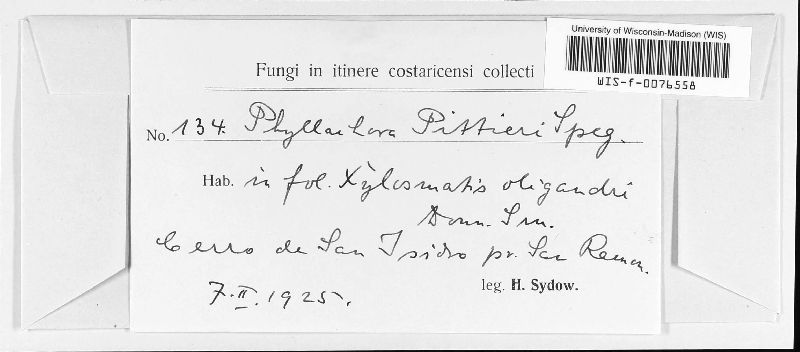 University of Wisconsin-Madison (WIS)
WIS-f-0076558
Fungi in itinere costaricensi collecti
No. 134. Phyllachora Pittieri Speg.
Hab. in fol. Xylosmatis oligandri
Donn. Sm.
Cerro de San Isidro pr. San Ramon.
7.II.1925. leg. H. Sydow.